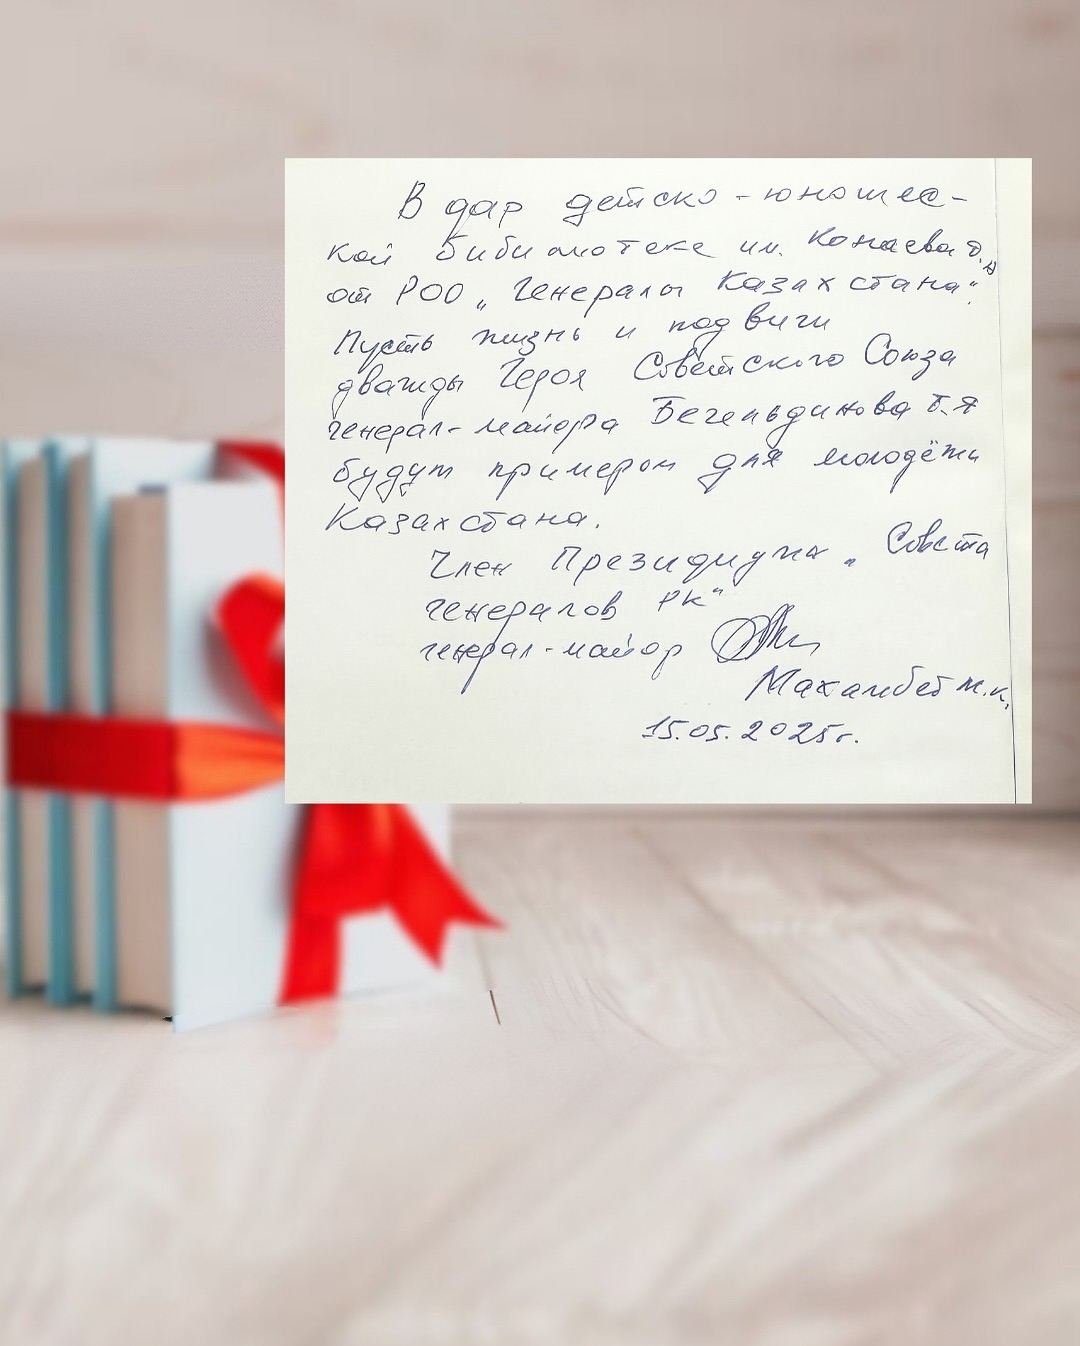 В дар детско-юношес-
кой библиотеке им. Конаева Д.А
от РОО „Генералы Казахстана".
Пусть жизнь и подвиги
дважды Героя Советского Союза
генерал-майора Бегельдинова Т.Я
будут примером для молодёжи
Казахстана.
Член Президиума „Совета
генералов РК"
генерал-майор
Махамбет М.К.
15.05.2025г.